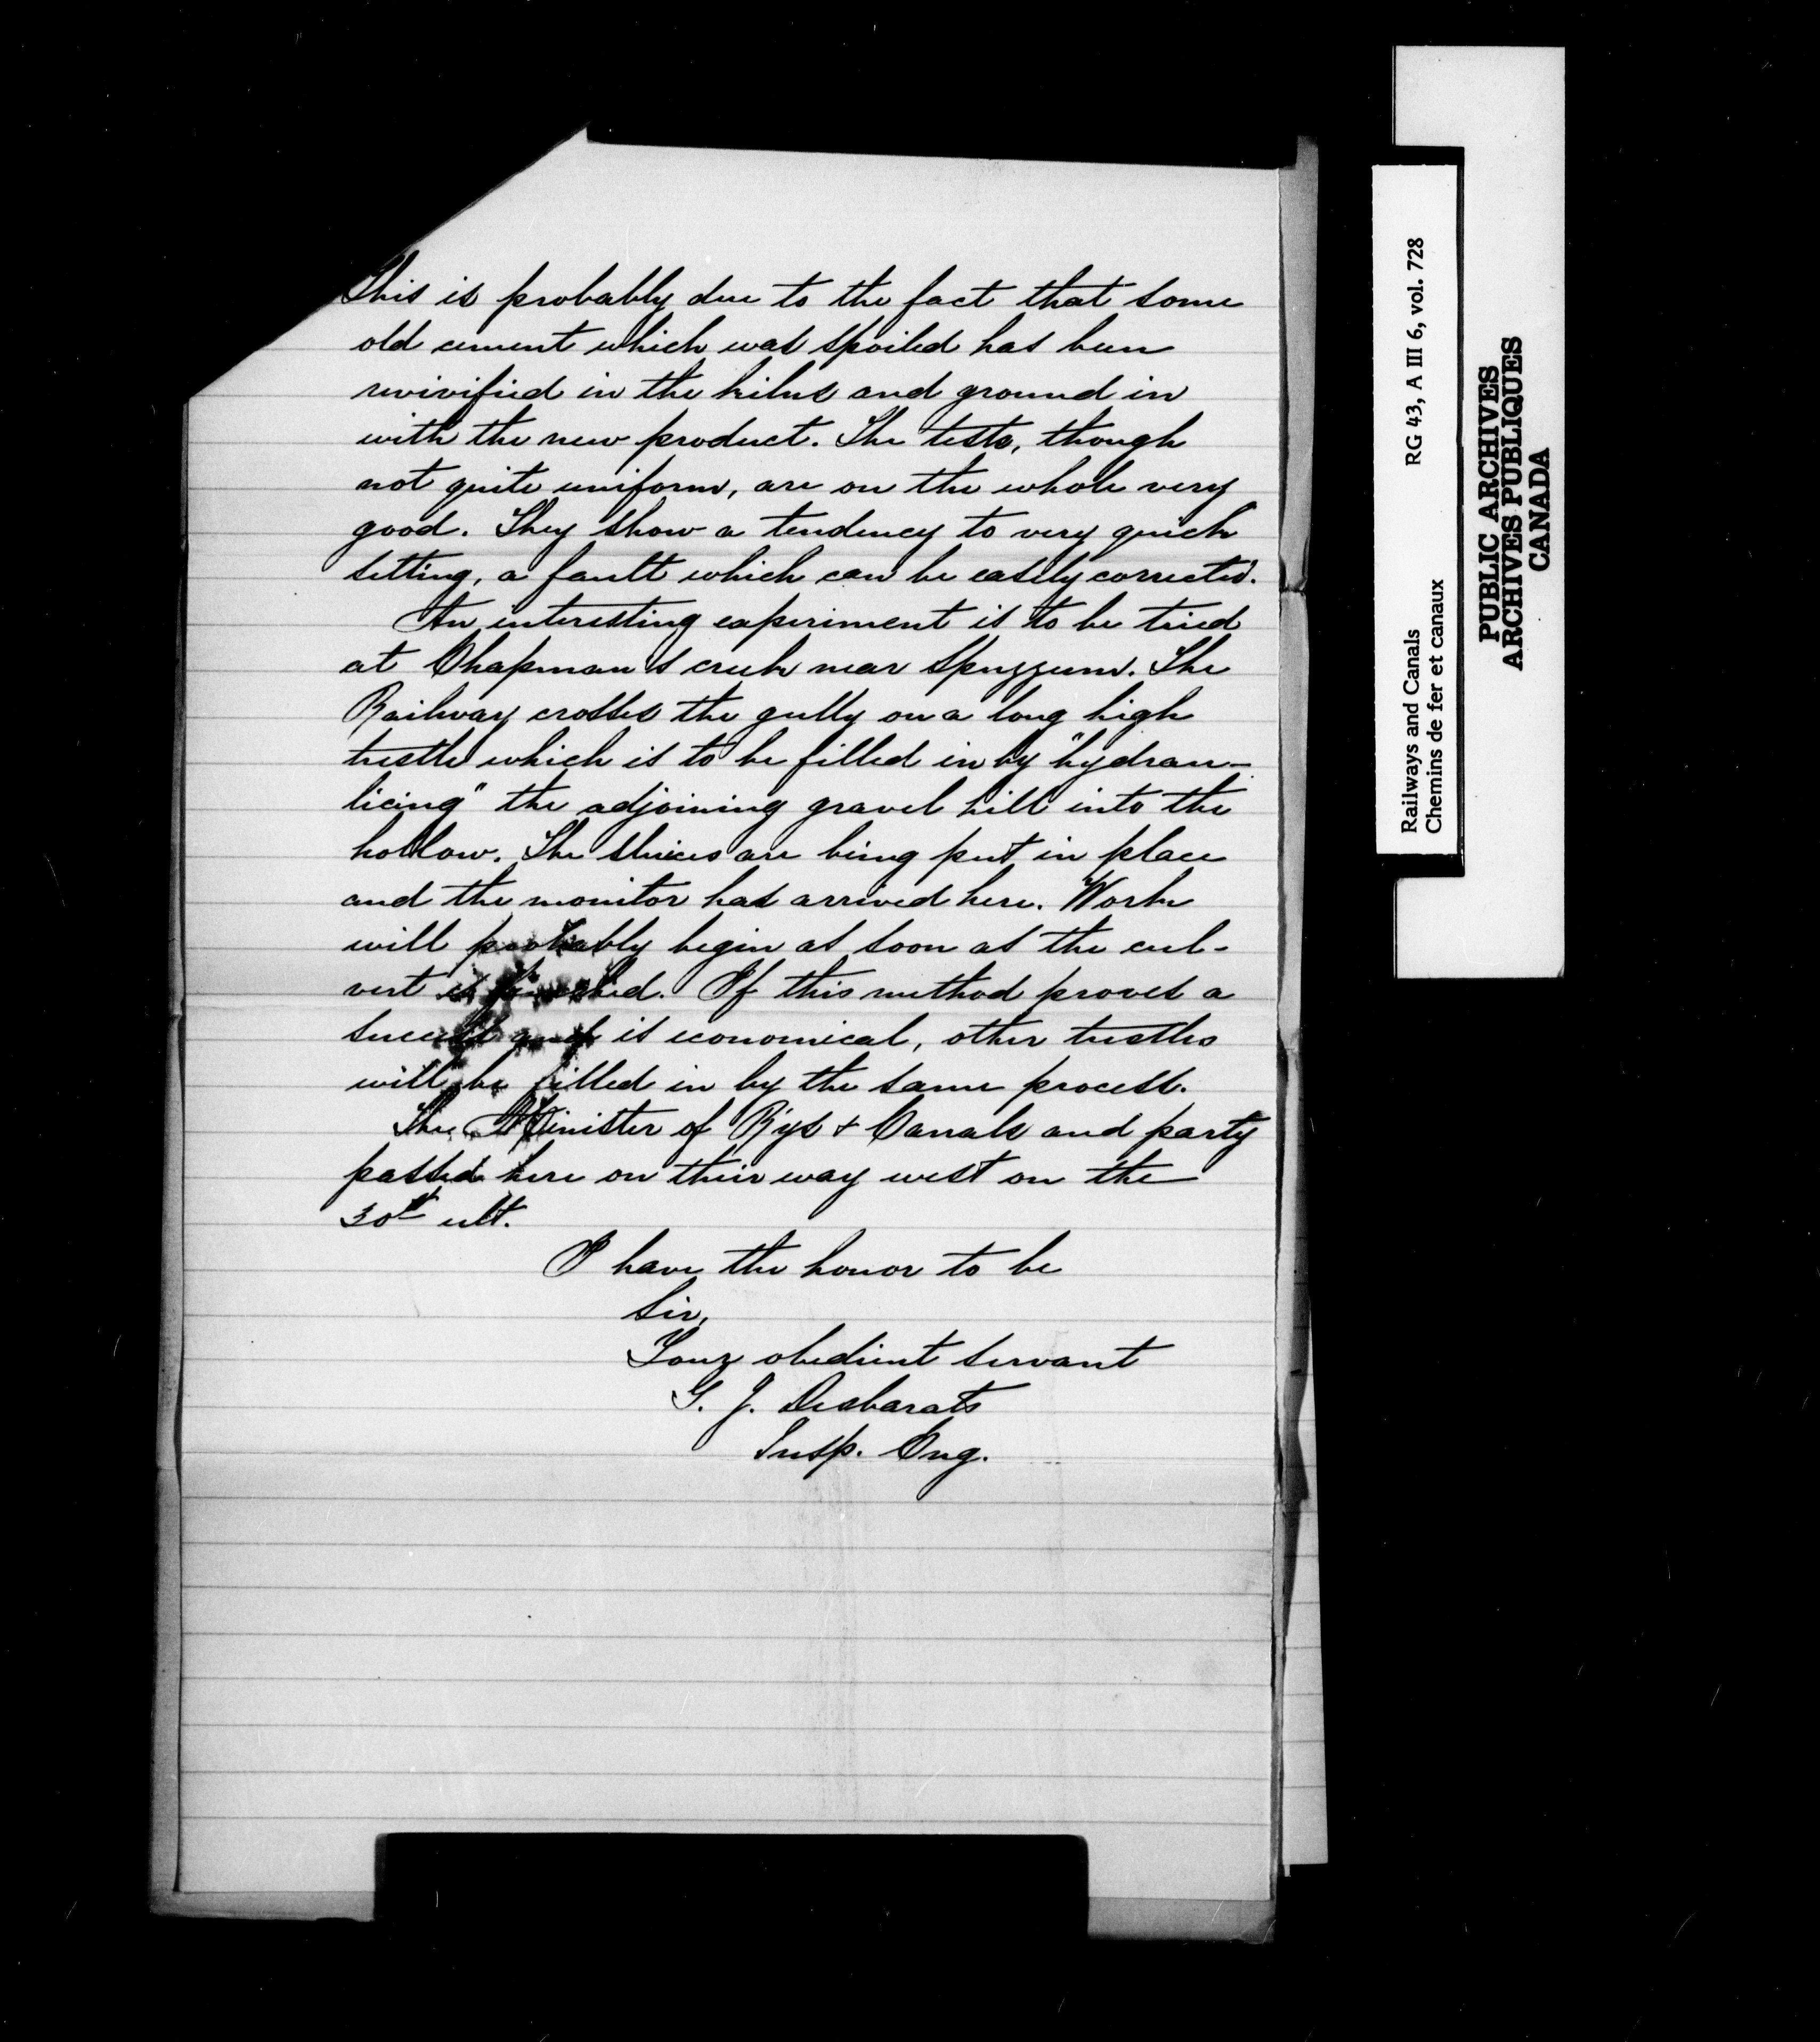 This is probably due to the fact that some
old cement which was spoiled has been
revivified in the kilns and ground in
with the new product. The tests, though
not quite uniform, are on the whole very
good. They show a tendency to very quick
setting, a fault which can be easily corrected.
An interesting experiment is to be tried
at Chapman's creek near Spuzzum. The
Railway crosses the gully on a long high
trestle which is to be filled in by "hydrau-
licing" the adjoining gravel hill into the
hollow. The sluices are being put in place
and the monitor has arrived here. Work
will probably begin as soon as the cul-
vert is finished. If this method proves a
success and is economical, other trestles
will be filled in by the same process.
The Minister of Rys & Canals and party
passed here on their way west on the
30th ult.
I have the honor to be
Sir,
Your obedient servant
G. J. Desbarats
Insp. Eng.
Railways and Canals
Chemins de fer et canaux
RG 43, A III 6, vol. 728
PUBLIC ARCHIVES
ARCHIVES PUBLIQUES
CANADA